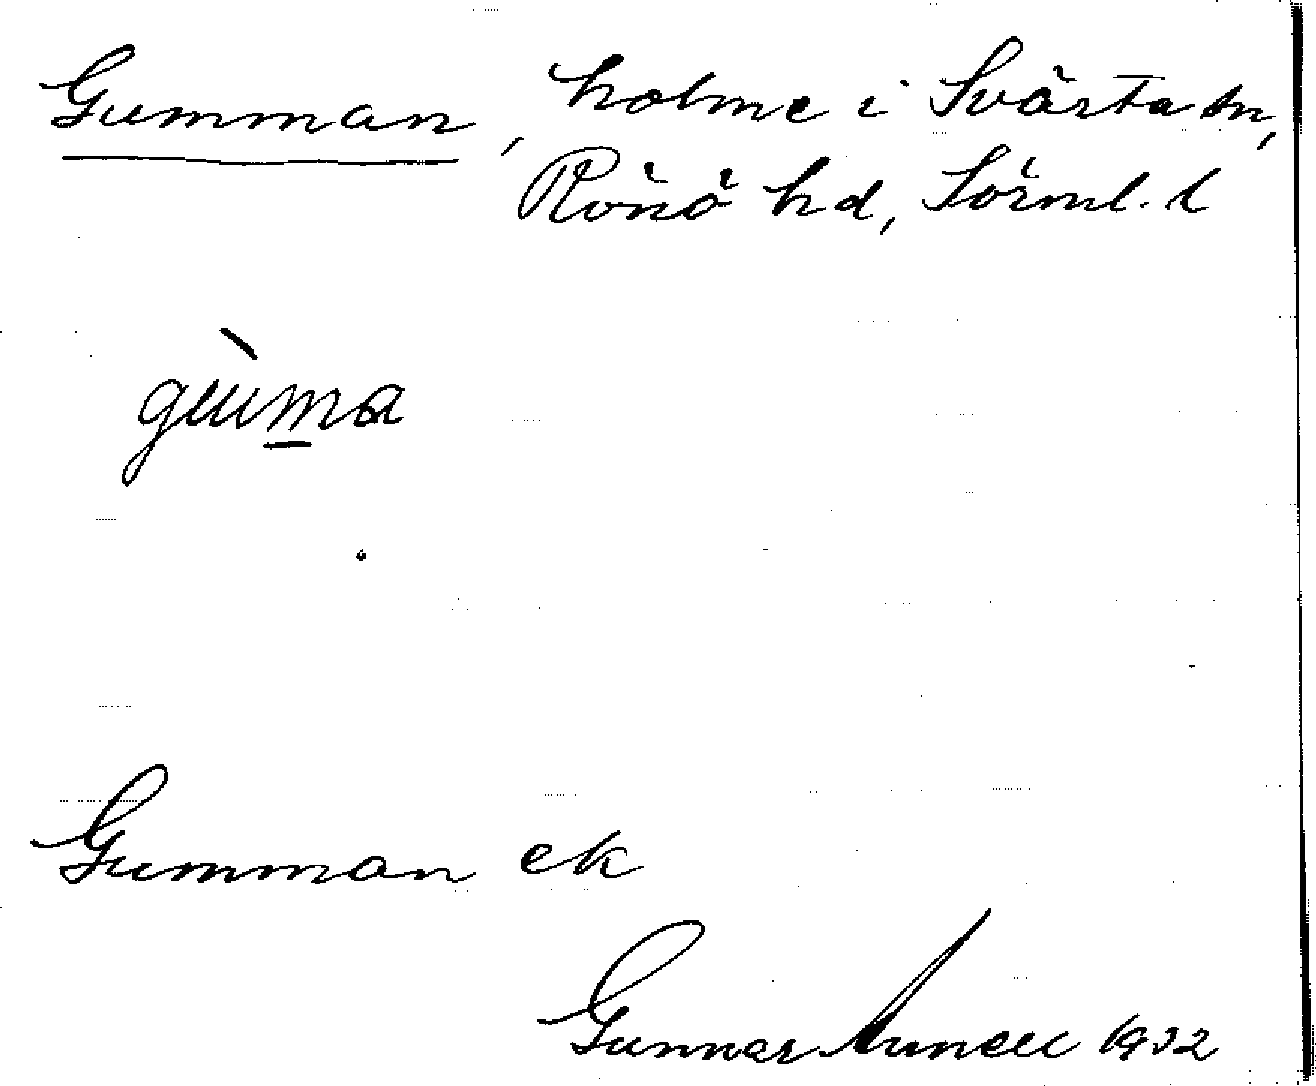 Gumman, holme i Svärta sn,
Rönö hd, Sörml. l
Gumman ek
Gunnar 1932